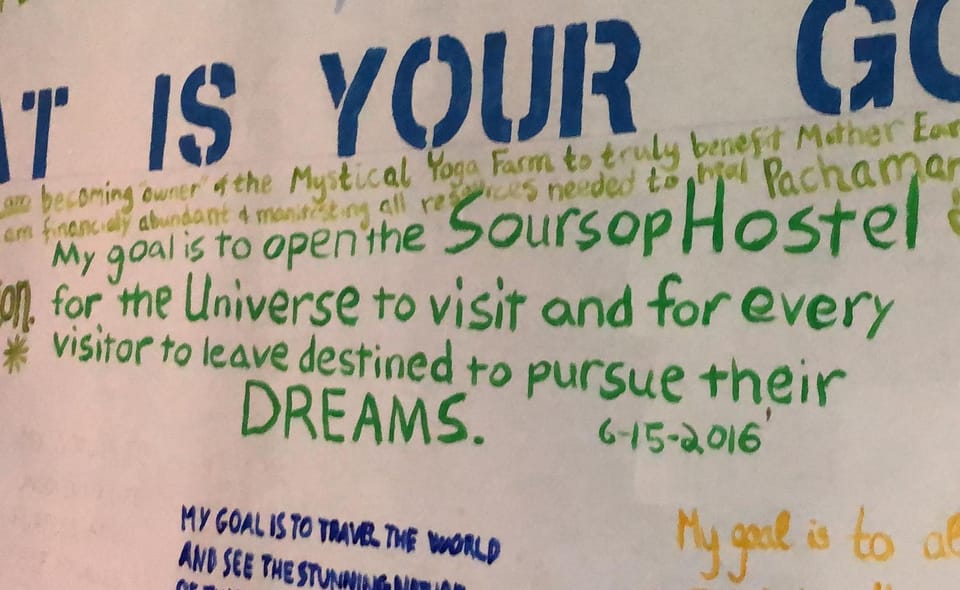 AT IS YOUR GO
am becoming "owner" of the Mystical Yoga Farm to truly benefit Mother Ear
am financialy abundant & manifesting all resources needed to heal Pachamam
My goal is to open the Soursop Hostel
for the Universe to visit and for every
visitor to leave destined to pursue their
DREAMS. 6-15-2016
on.
MY GOAL IS TO TRAVEL THE WORLD
AND SEE THE STUNNING
My goal is to al